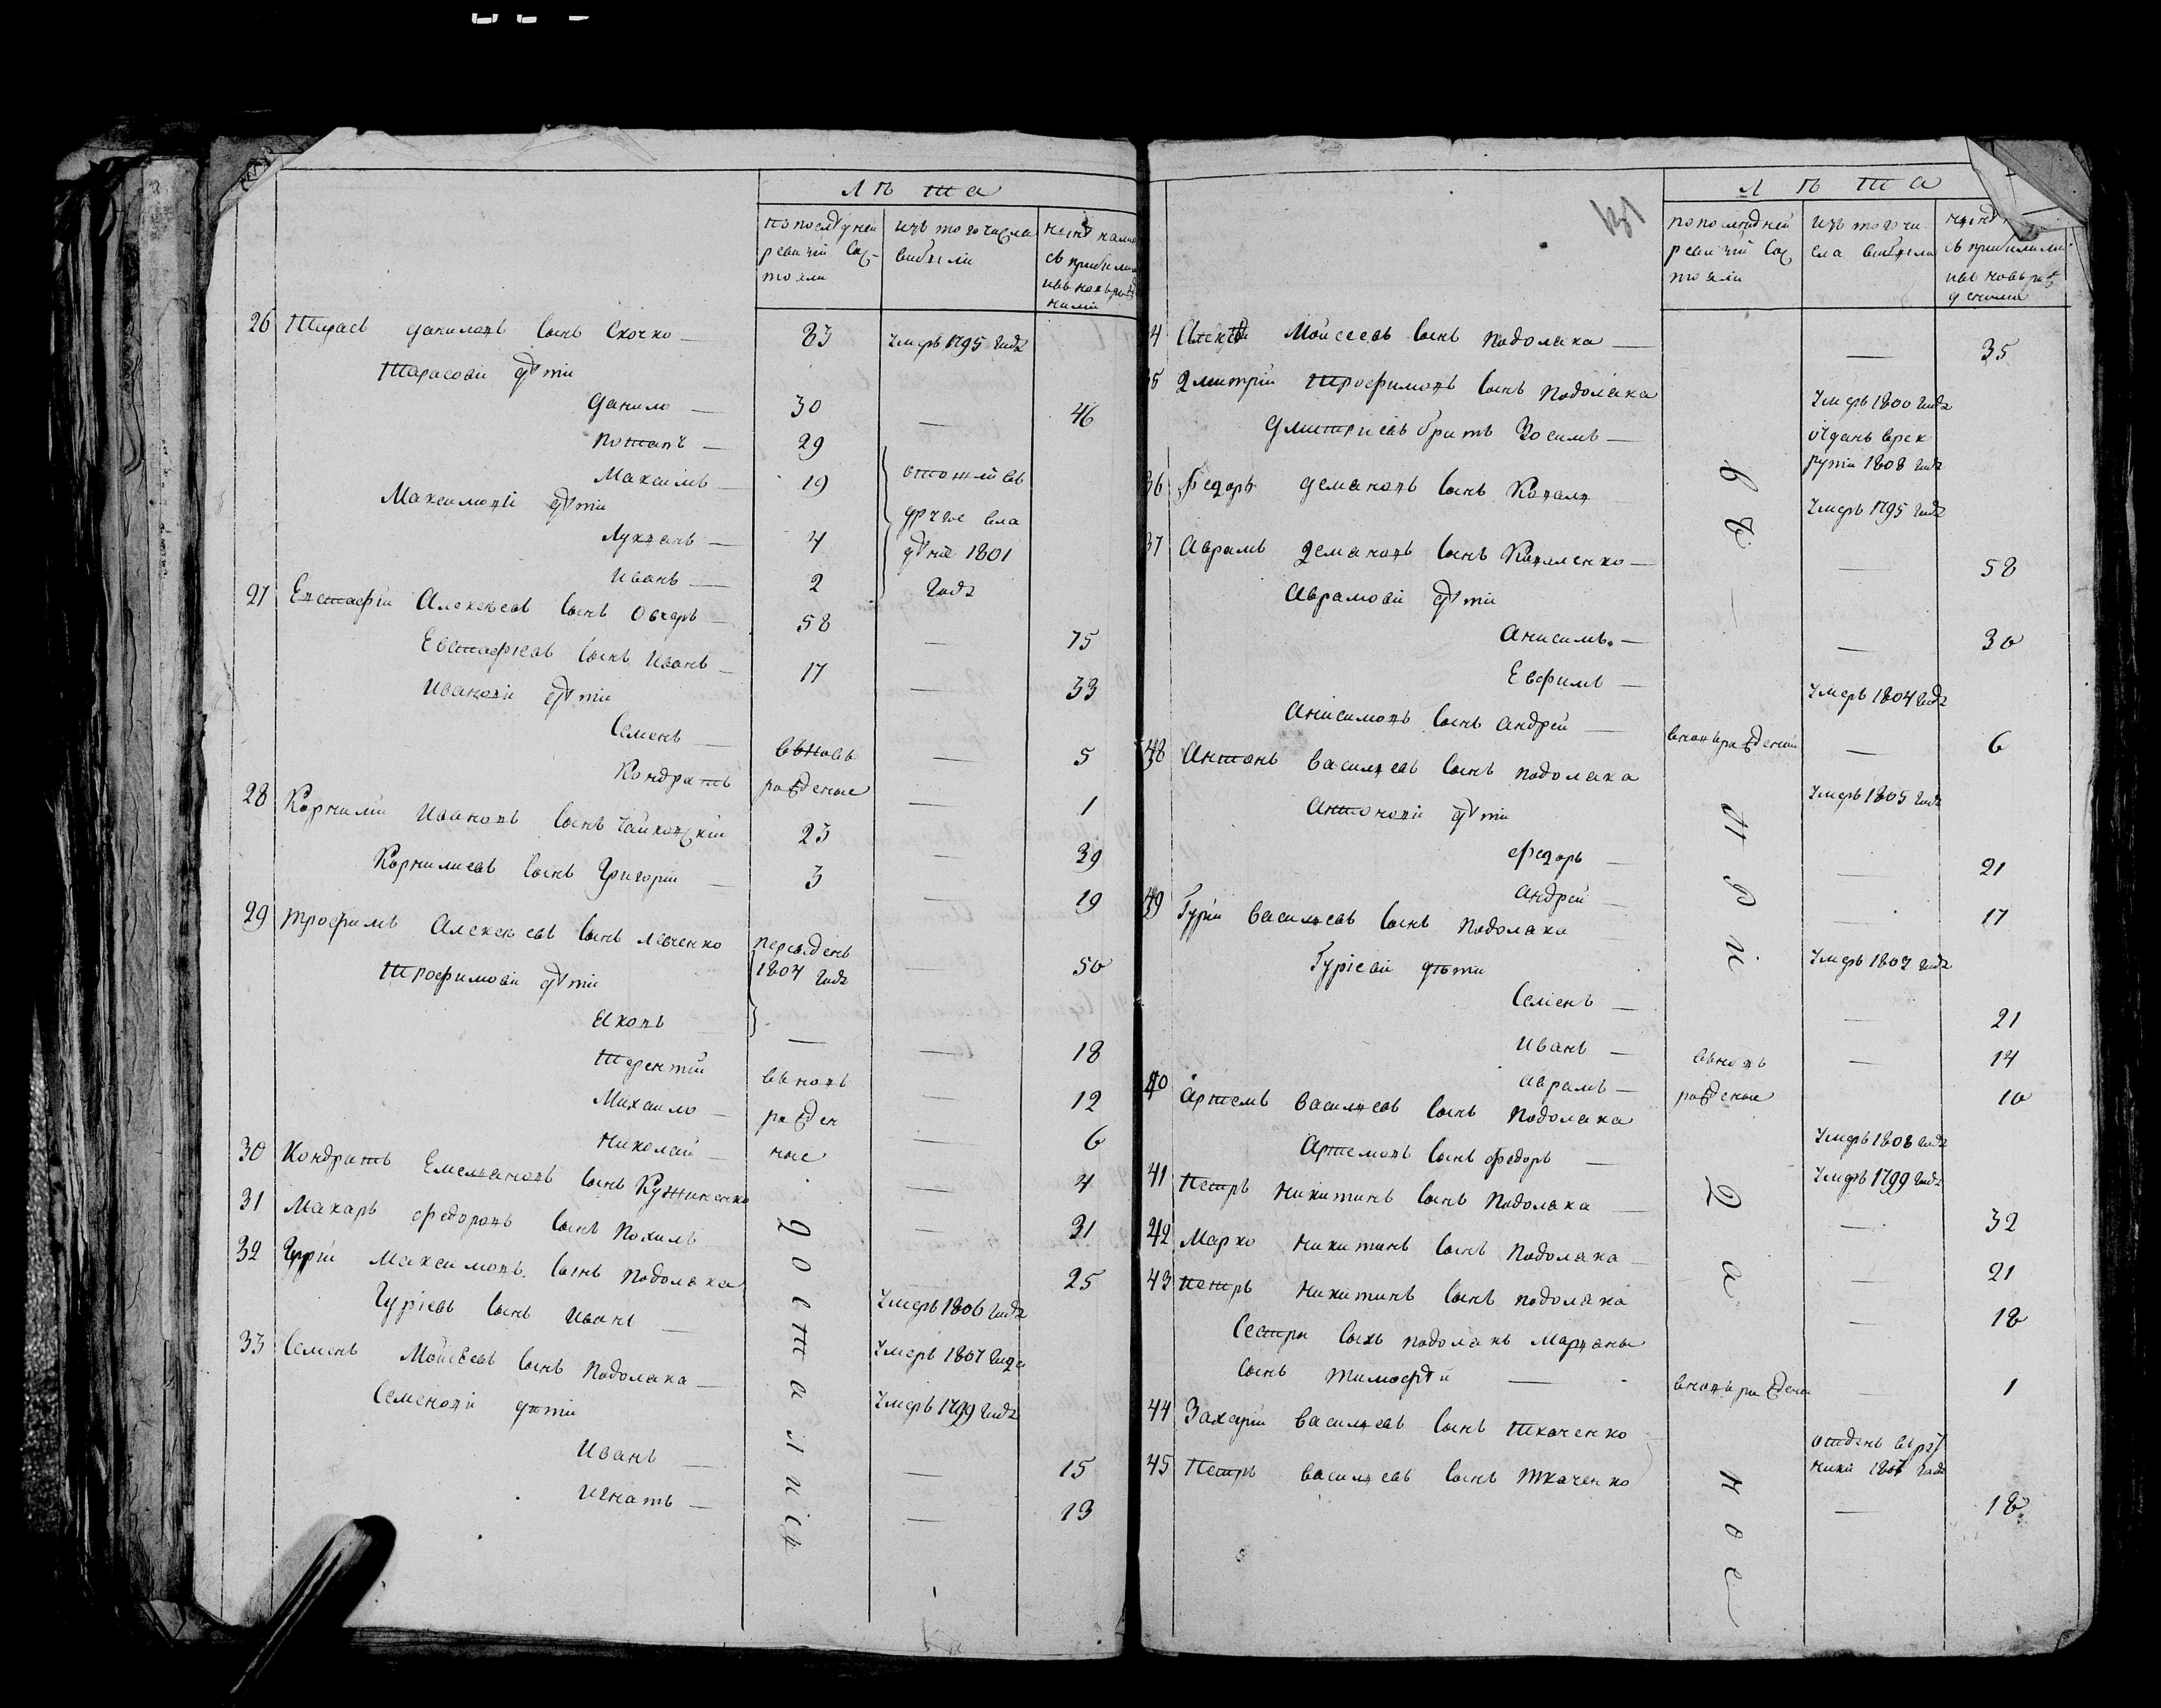 Лѣта
по последней ревизiи состояли
изъ того числа выбыли
ныне налицо съ прибылими и въновь рожденими
26 Тарасъ Даниловъ сынъ Скочко — 83 умеръ 1795 года
Тарасови дѣти
Данило — 30 — 46
Потапъ — 29
Максимъ — 19 отошли въ
Максимовi дѣти другое вла
Лукянъ — 4 дѣние 1801
Иванъ — 2 года
27 Евстафiй Алексѣевъ сынъ Овчаръ — 58 — 75
Евстафiевъ сынъ Иванъ — 17 — 33
Ивановi дѣти
Семенъ — вьновь — 5
Кондратъ рожденые — 1
28 Корнилiй Ивановъ сынъ Чайковскiй 23 — 39
Корнилиевъ сынъ Григорiй — 3 — 19
29 Трофимъ Алексѣевъ сынъ Левченко переведенъ 1807 года 50
Трофимови дѣти
Яковъ — — — 18
Терентiй вьновь — 12
Михаило — рожден — 6
Николай — ные — 4
30 Кондратъ Емеляновъ сынъ — 31
31 Макаръ Федоровъ сынъ — 25
32 Гурiй Максимовъ сынъ Подоляка умеръ 1806 года
Гурiевъ сынъ Иванъ — умеръ 1807 года
33 Семенъ Мойсеевъ сынъ Подоляка — умеръ 1799 года
Семеновi дѣти
Иванъ — — 15
Игнатъ — — 13
Лѣта
по последней ревизiи состояли
изъ того числа выбыли
съ прибылими и въновь рождеными
4 Алексѣй Мойсеевъ сынъ Подоляка — — 35
35 Дмитрiй Трофимовъ сынъ Подоляка умеръ 1800 года
Дмитриевъ братъ Зосимъ — отданъ врекруты 1808 года
36 Федоръ Демяновъ сынъ Коваль умеръ 1795 года
37 Аврамъ Демяновъ сынъ Коваленко — — 58
Аврамови дѣти
Анисимъ — — 30
Евфимъ — умеръ 1804 года
Анисимовъ сынъ Андрей — вновьрожденый — 6
38 Антонъ Василевъ сынъ Подоляка умеръ 1805 года
Антоновi дѣти
Федоръ — — 21
Андрей — — 17
39 Гурiй Василевъ сынъ Подоляка умеръ 1807 года
Гурiеви дѣти
Семенъ — — 21
Иванъ — вьновь — 14
Аврамъ — рожденые 10
40 Артемъ Василевъ сынъ Подоляка умеръ 1808 года
Артемовъ сынъ Федоръ — умеръ 1799 года
41 Петръ Никитинъ сынъ Подоляка — — 32
42 Марко Никитинъ сынъ Подоляка — — 21
43 Петръ Никитинъ сынъ Подоляка — 18
Сестры сихъ Подолякъ Маряны
сынъ Тимофѣй — — 1
44 Захарiй Василевъ сынъ Ткаченко отданъ
45 Петръ Василевъ сынъ Ткаченко — 18